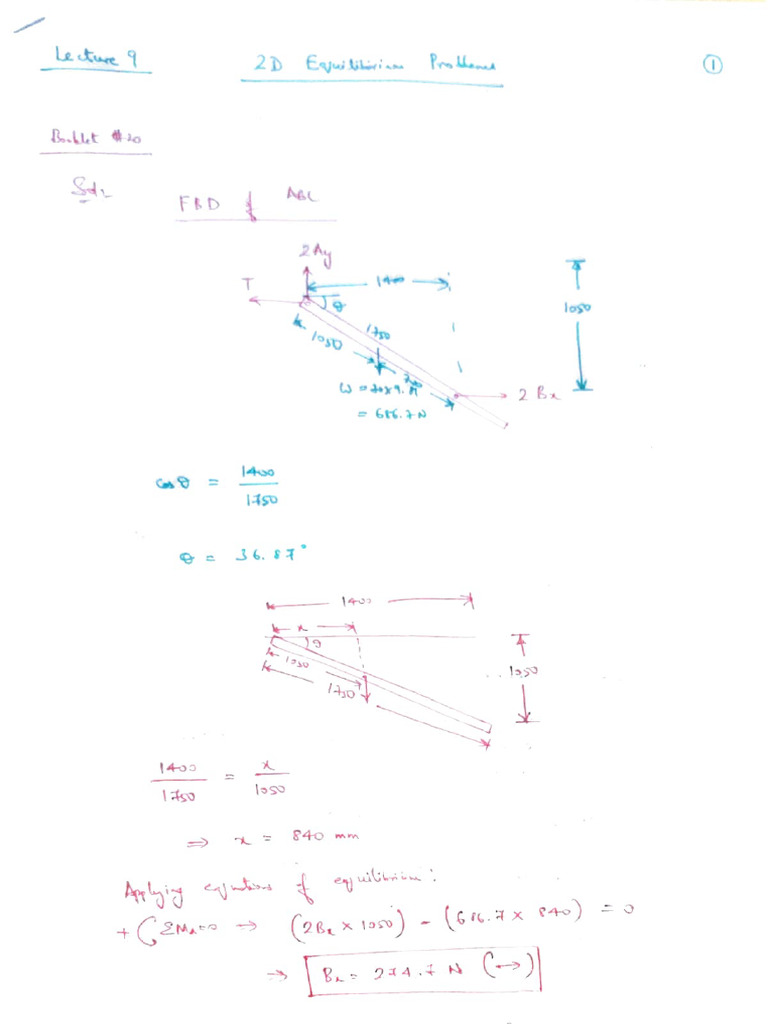 Lecture 9
2D Equilibrium Problems
1
Booklet #20
Sol:
FBD of ABC
2Ay
T
1400
θ
1050
1750
1050
700
W = 70x9.81
= 686.7 N
2 Bx
cos θ = 1400 / 1750
θ = 36.87°
1400
x
θ
1050
1750
1050
1400 / 1750 = x / 1050
⇒ x = 840 mm
Applying equations of equilibrium:
+ ΣMA=0 → (2Bx × 1050) - (686.7 × 840) = 0
⇒ Bx = 274.7 N (↔)